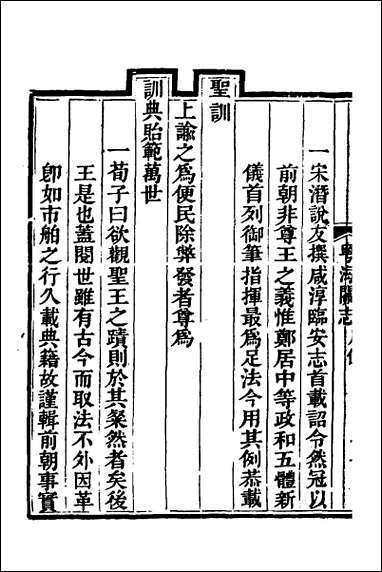 粵海關志
一宋潛說友撰咸淳臨安志首載詔令然冠以
前朝非尊王之義惟鄭居中等政和五體新
儀首列御筆指揮最爲足法今用其例恭載
聖訓
上諭之爲便民除弊發者尊爲
訓典貽範萬世
一荀子曰欲觀聖王之蹟則於其粲然者矣後
王是也蓋閱世雖有古今而取法不外因革
卽如市舶之行久載典籍故謹輯前朝事實